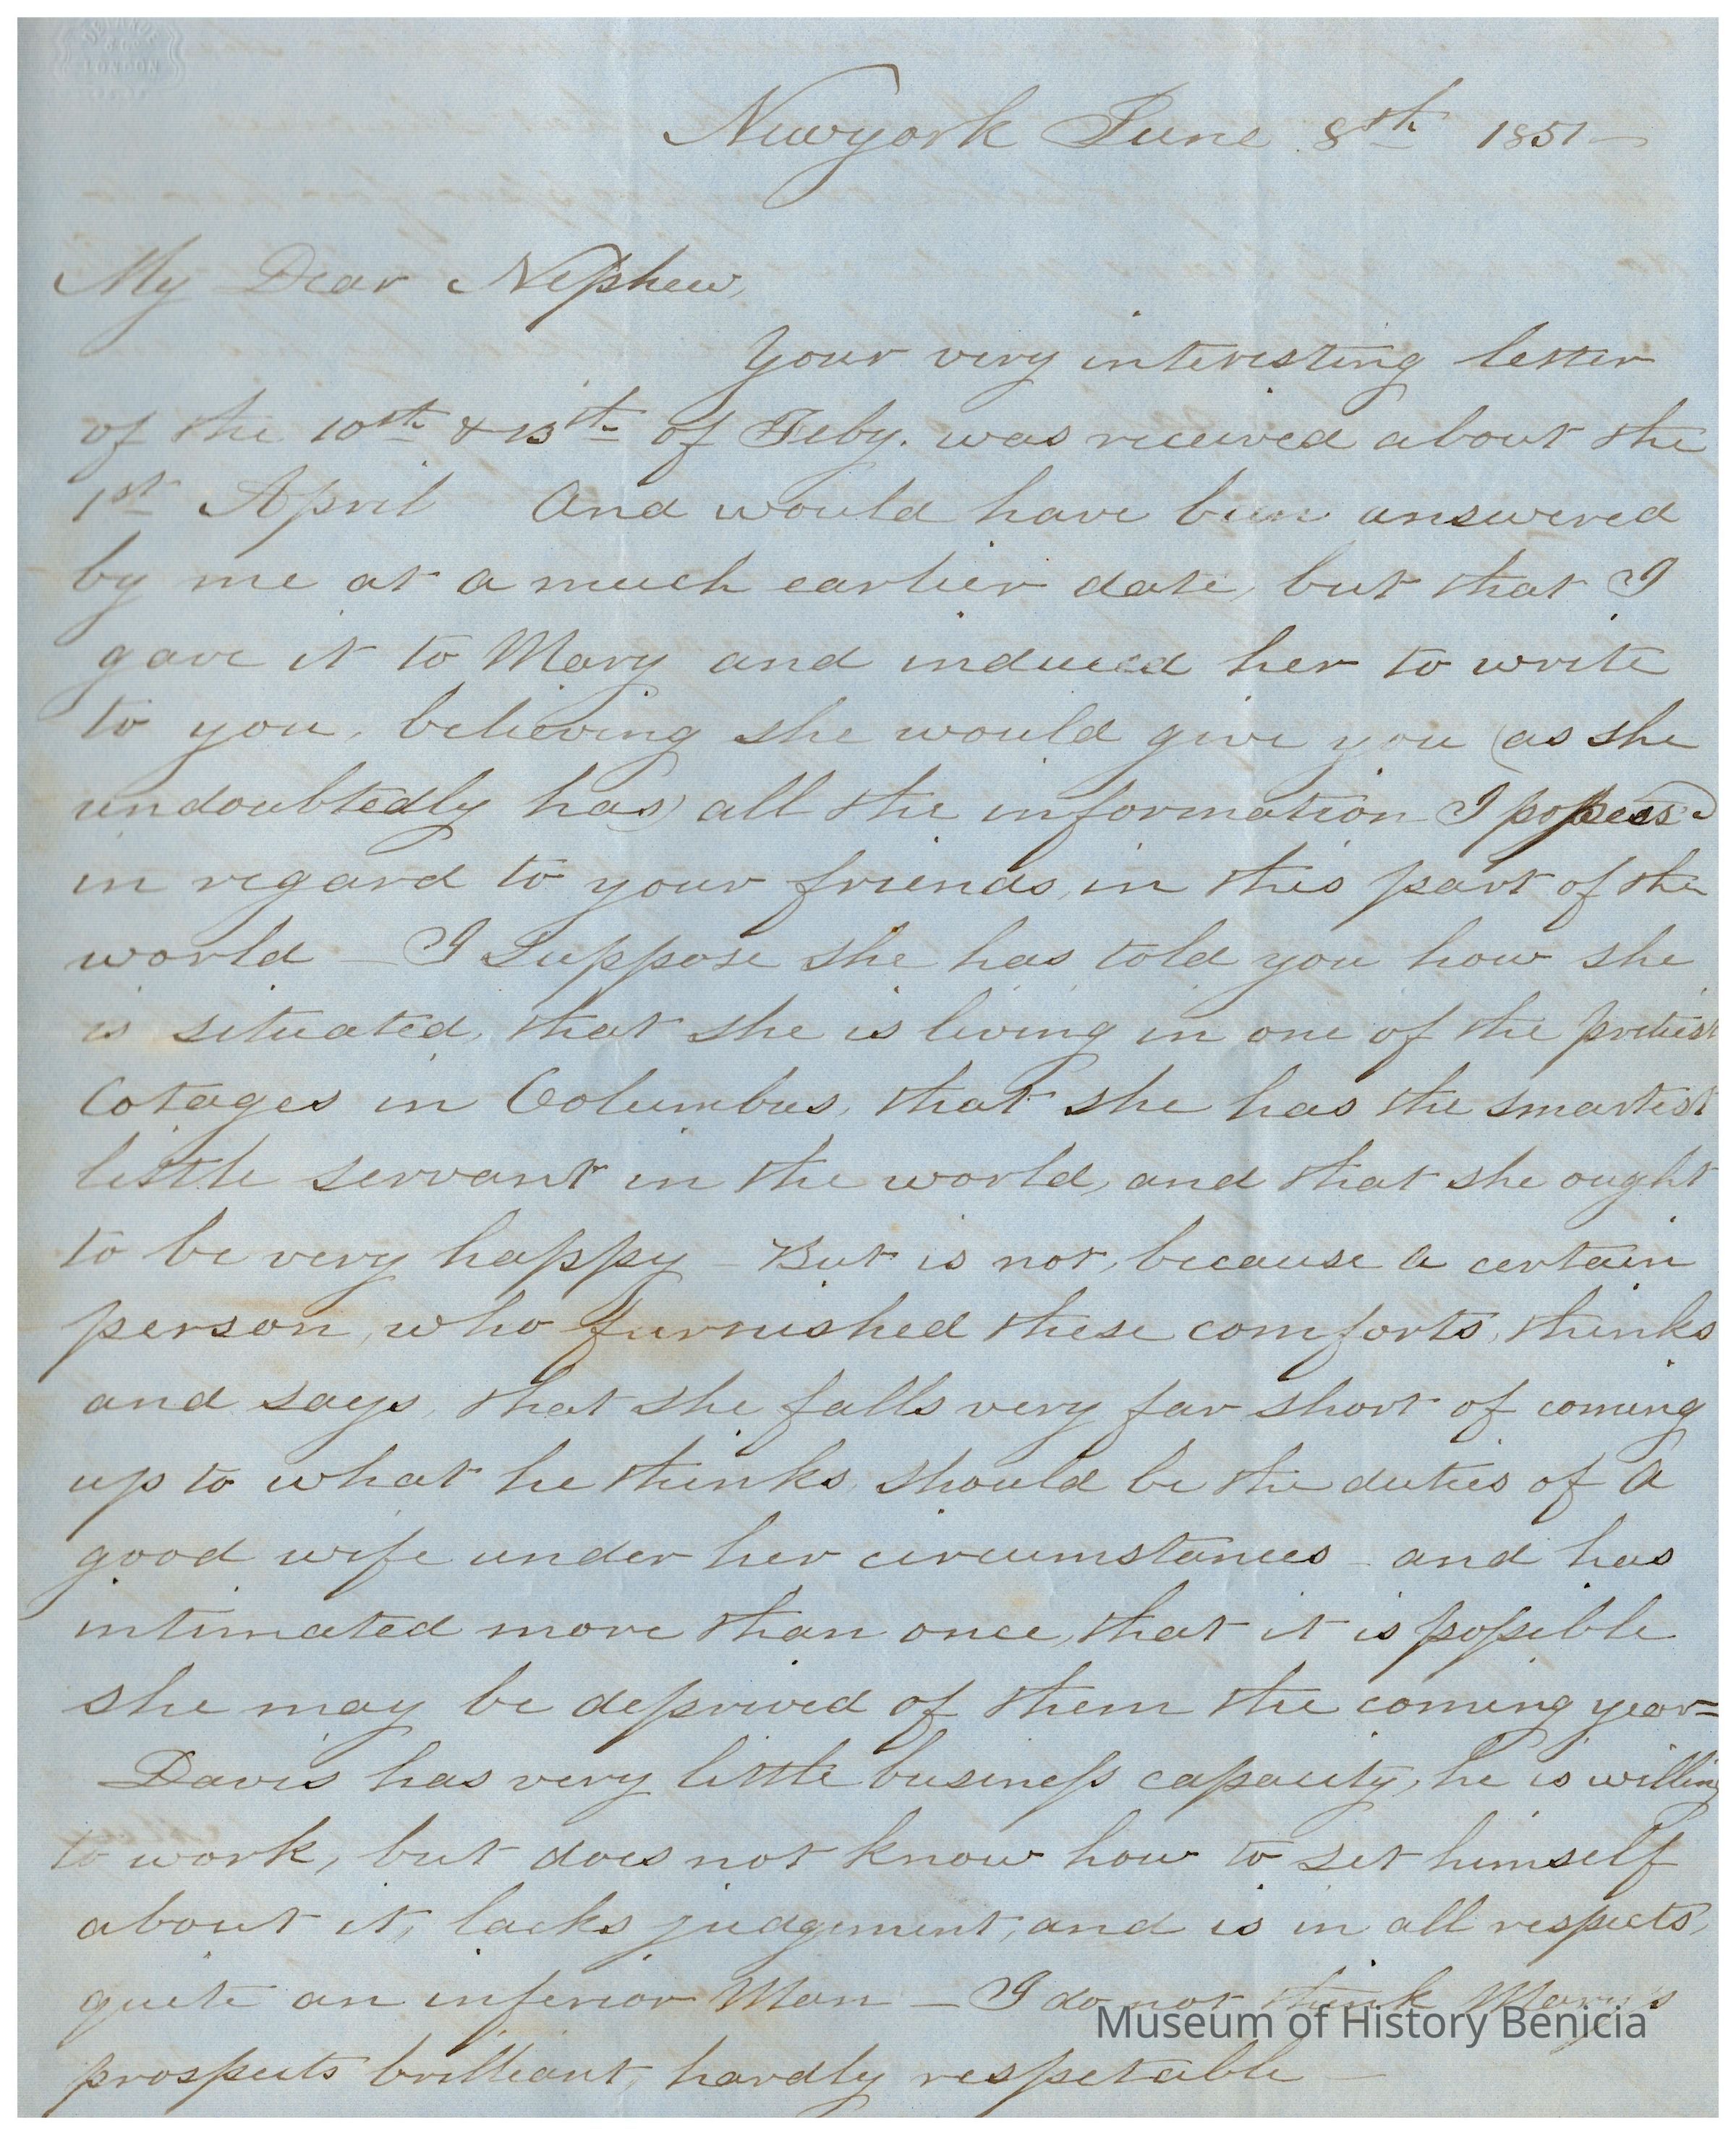 LONDON
Newyork June 8th 1851—
My Dear Nephew,
Your very interesting letter
of the 10th & 13th of Feby. was received about the
1st April And would have been answered
by me at a much earlier date, but that I
gave it to Mary and induced her to write
to you, believing she would give you (as she
undoubtedly has) all the information I possess
in regard to your friends, in this part of the
world — I Suppose she has told you how she
is situated, that she is living in one of the prettiest
Cotages in Columbus, that she has the smartest
little servant in the world, and that she ought
to be very happy — But is not, because a certain
person, who furnished these comforts, thinks
and says, that she falls very far short of coming
up to what he thinks, should be the duties of a
good wife under her circumstances — and has
intimated more than once, that it is possible
she may be deprived of them the coming year=
Davis has very little business capacity, he is willing
to work, but does not know how to set himself
about it, lacks judgement, and is in all respects,
quite an inferior Man — I do not think Mary's
prospects brilliant, hardly respetable —
Museum of History Benicia